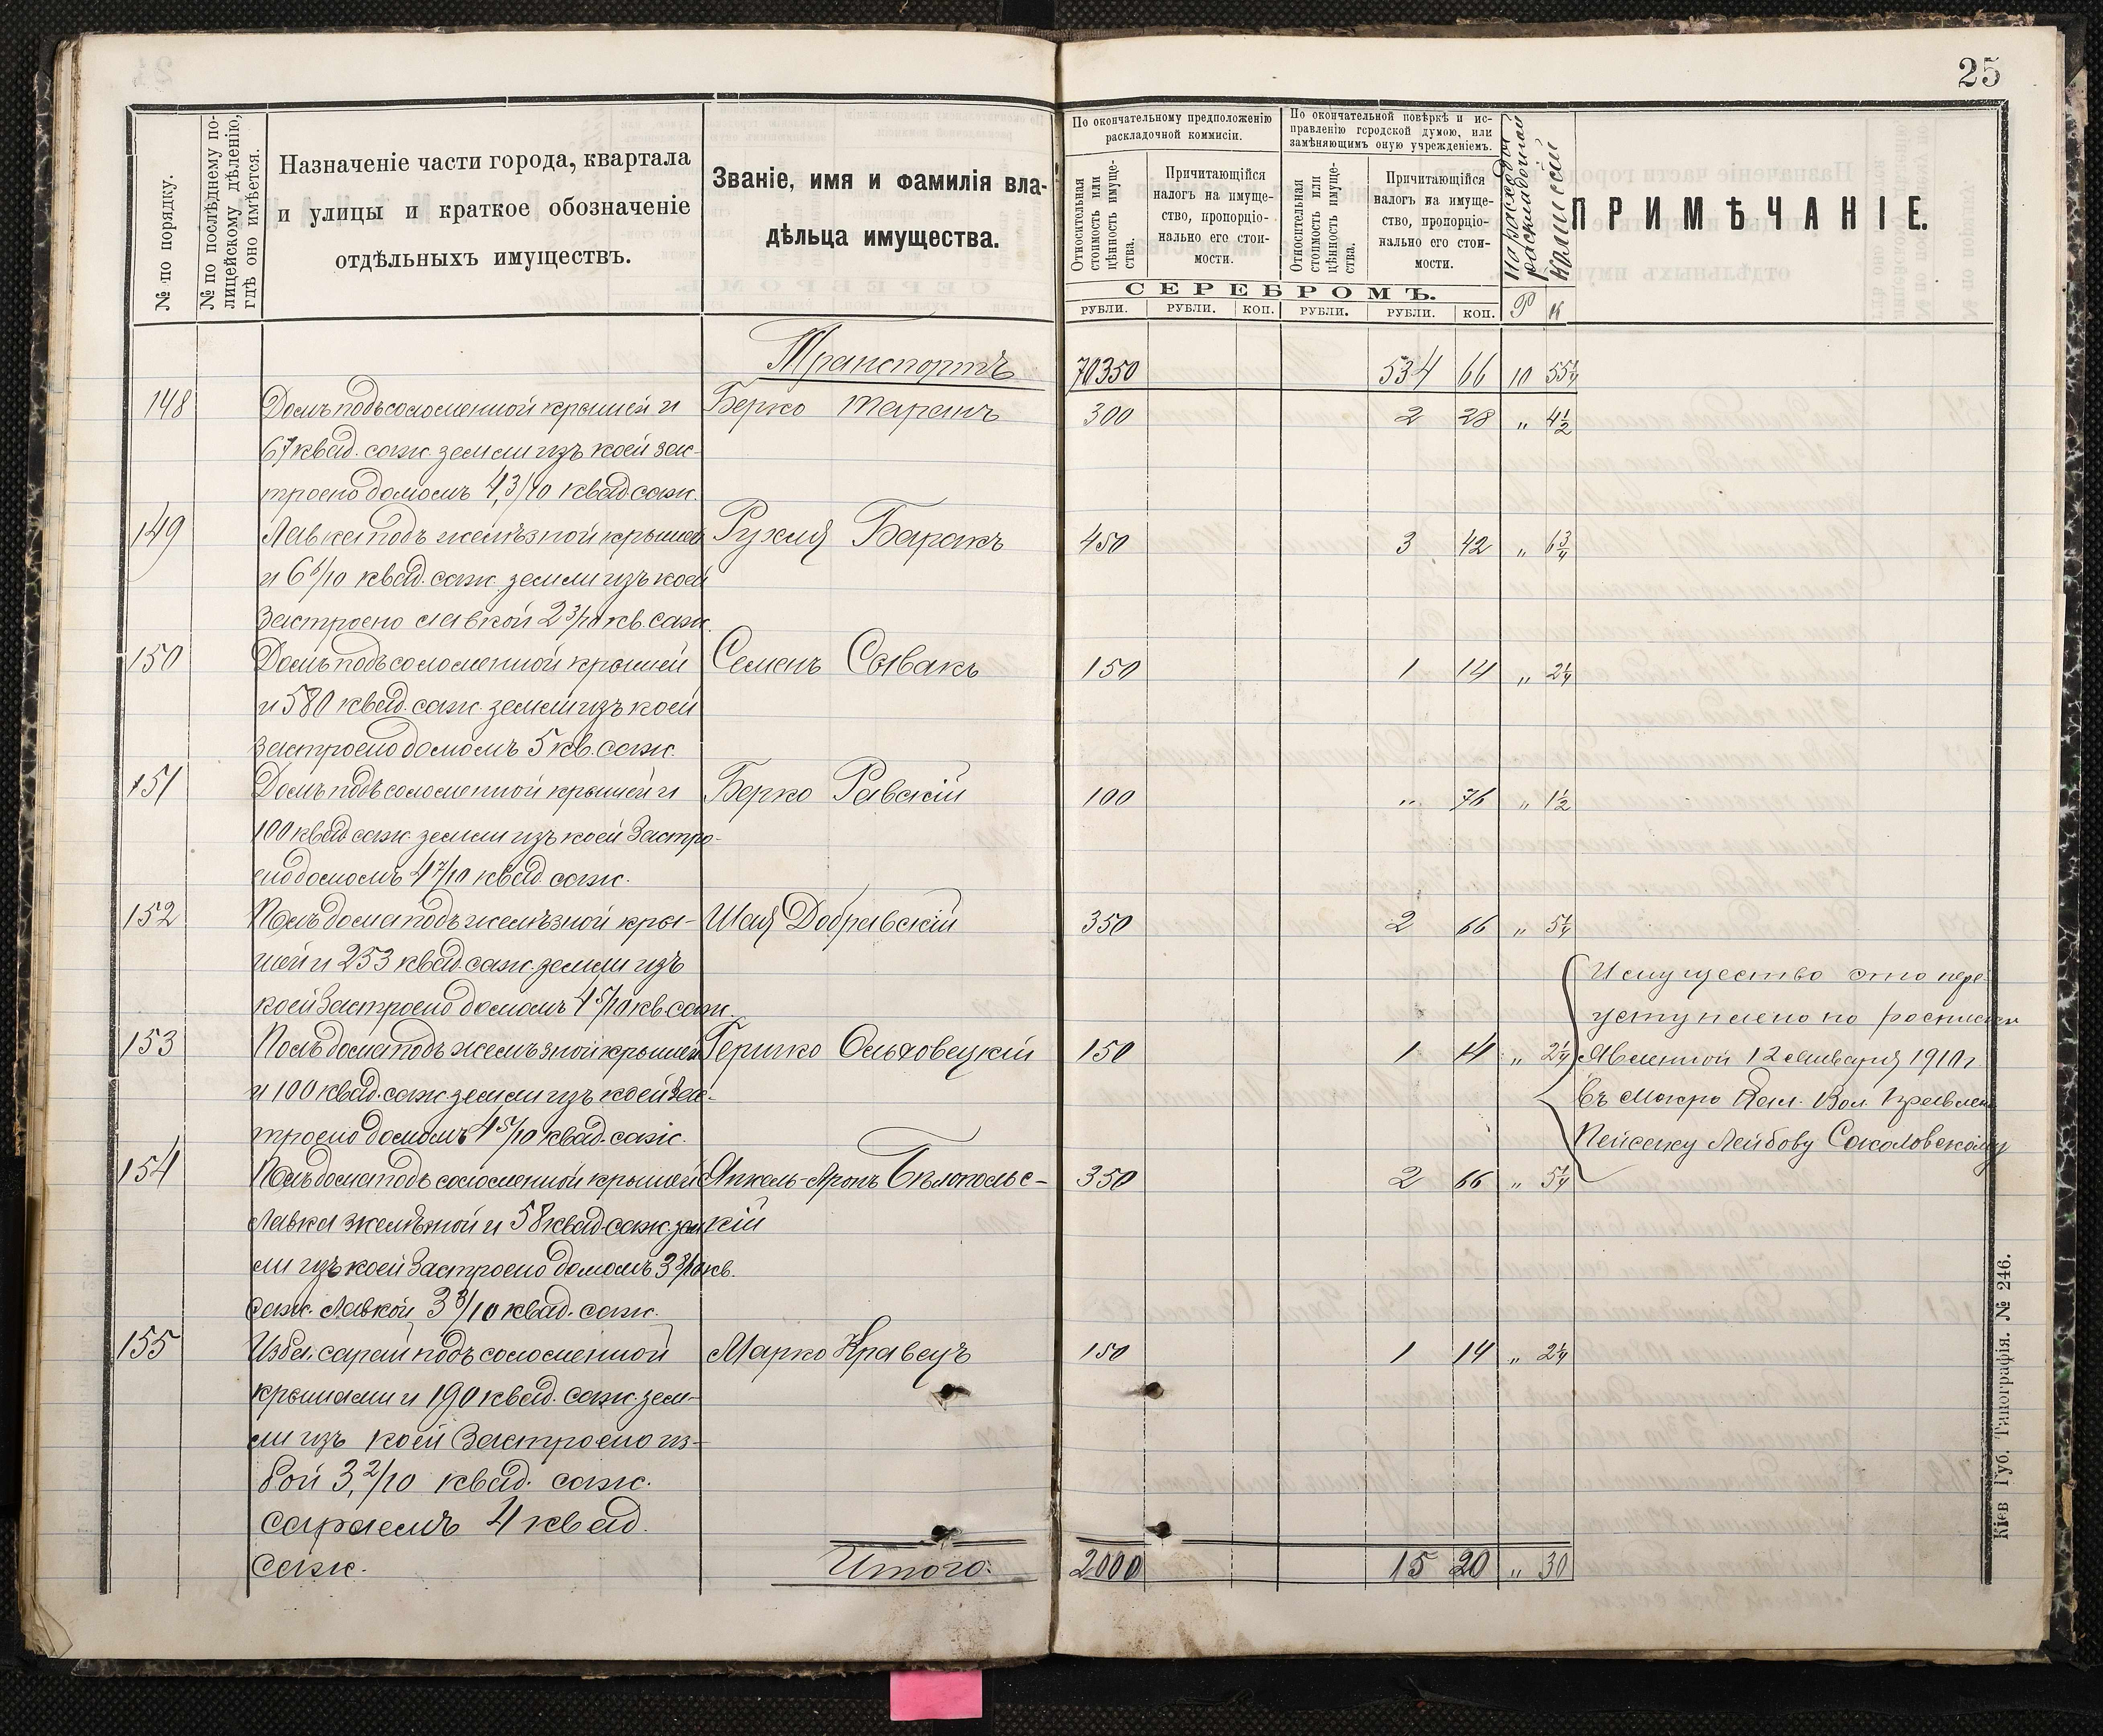 25
№ по порядку.
№ по послѣднему по-
лицейскому дѣленію,
гдѣ оно имѣется.
Назначеніе части города, квартала
и улицы и краткое обозначеніе
отдѣльныхъ имуществъ.
Званіе, имя и фамилія вла-
дѣльца имущества.
По окончательному предположенію
раскладочной коммисіи.
Относительная
стоимость или
цѣнность имуще-
ства.
Причитающійся
налогъ на имуще-
ство, пропорціо-
нально его стои-
мости.
По окончательной повѣркѣ и ис-
правленію городской думою, или
замѣняющимъ оную учрежденіемъ.
Относительная
стоимость или
цѣнность имуще-
ства.
Причитающійся
налогъ на имуще-
ство, пропорціо-
нально его стои-
мости.
на расходы
раскладочной
комисіи
ПРИМѢЧАНІЕ.
СЕРЕБРОМЪ.
РУБЛИ. РУБЛИ. КОП. РУБЛИ. РУБЛИ. КОП. Р К
Транспортъ 70350 534 66 10 55¼
148 Домъ подъ соломенной крышей и Берко Таранъ 300 2 28 " 4½
67 квад. саж. земли изъ коей зас-
троено домомъ 4,3/10 квад саж.
149 Лавка подъ желѣзной крышей Рухля Баракъ 450 3 42 " 6¾
и 6 6/10 квад. саж. земли изъ коей
застроено лавкой 2 3/10 кв. саж.
150 Домъ подъ соломенной крышей Семенъ Сывакъ 150 1 14 " 2¼
и 580 квад. саж. земли изъ коей
застроено домомъ 5 кв. саж.
151 Домъ подъ соломенной крышей и Берко Равскій 100 " 76 " 1½
100 квад саж. земли изъ коей Застро-
ено домомъ 4 7/10 квад. саж.
152 Полъ дома подъ желѣзной кры- Шая Добравскій 350 2 66 " 5¼
шей и 253 квад. саж. земли изъ
коей Застроено домомъ 4 5/10 кв. саж.
153 Полъ дома подъ желѣзной крышей Гершко Ольховецкій 150 1 14 " 2¼
и 100 квад. саж. земли изъ коей Зас-
троено домомъ 4 5/10 квад. саж.
Имущество это пере-
уступлено по росписки
Явленной 12 Января 1910 г.
въ Мокро Кал. Вол. Правлен
Пейсаху Лейбову Соколовскому
154 Полъ дома подъ соломенной крышей Янкель-Аронъ Бѣлопольс- 350 2 66 " 5¼
Лавка желѣзной и 58 квад. саж. зем кій
ли изъ коей Застроено домомъ 3 3/10 кв.
саж. Лавкой 3 3/10 квад. саж.
155 Изба, сарай подъ соломенной Марко Кравецъ 150 1 14 " 2¼
крышами и 190 квад. саж. зем-
ли изъ коей Застроено из-
бой 3,2/10 квад. саж.
сараемъ 4 квад.
саж.
Итого: 2000 15 20 " 30
Кіев Губ. Типографія. № 246.